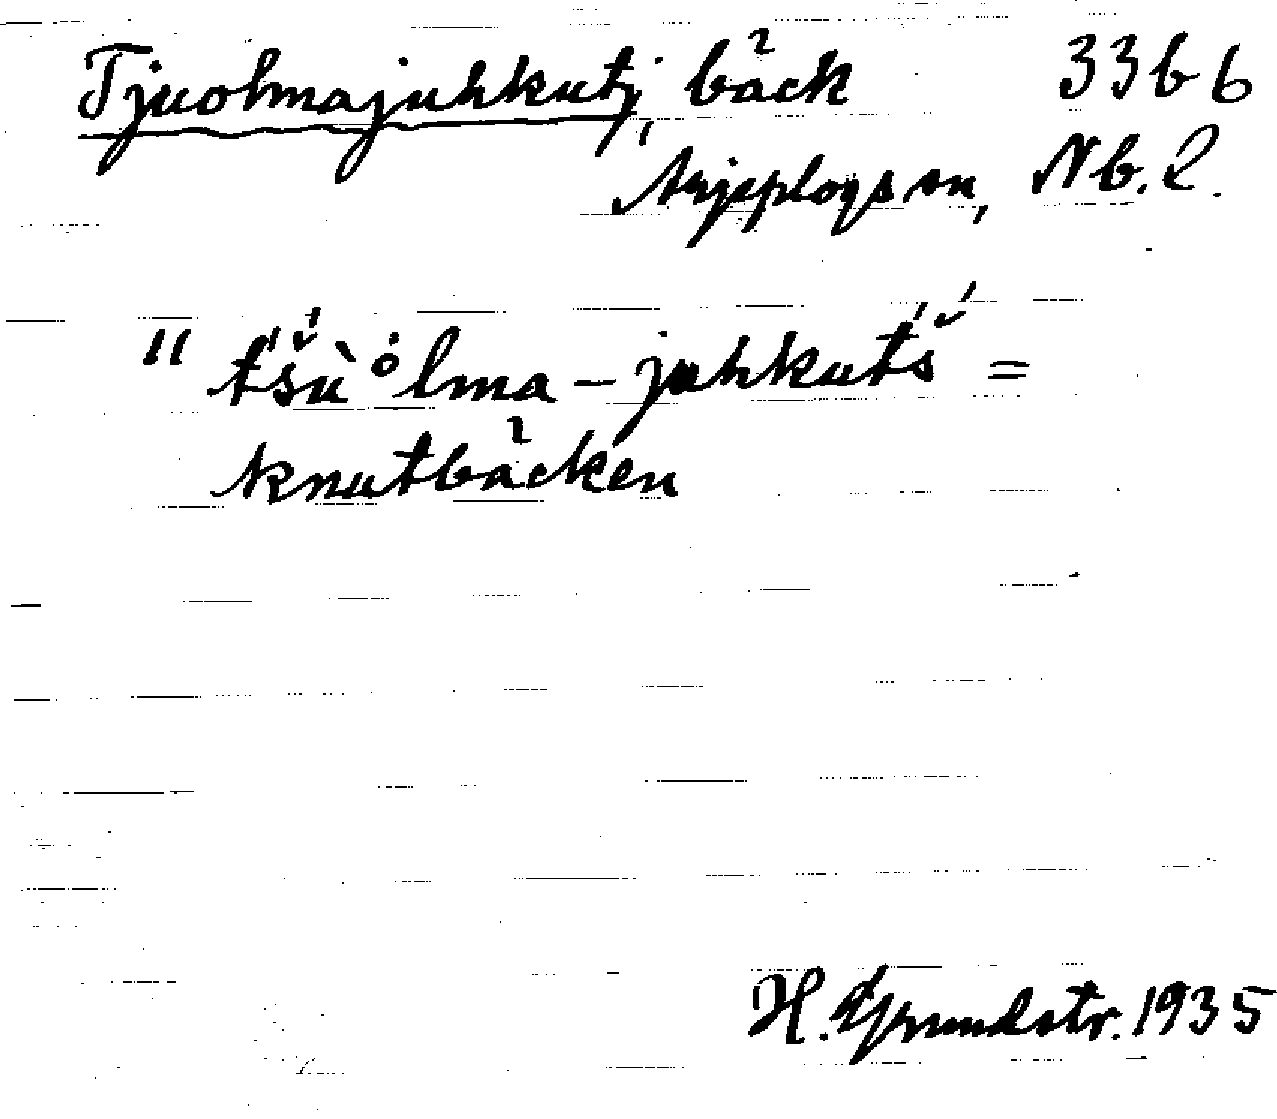 Tjuolmajuhkutj, bäck 33 b 6
Arjeplogs sn, Nb. L.
" t́šù̊lma – juhkut́š =
knutbäcken
H. Grundstr. 1935